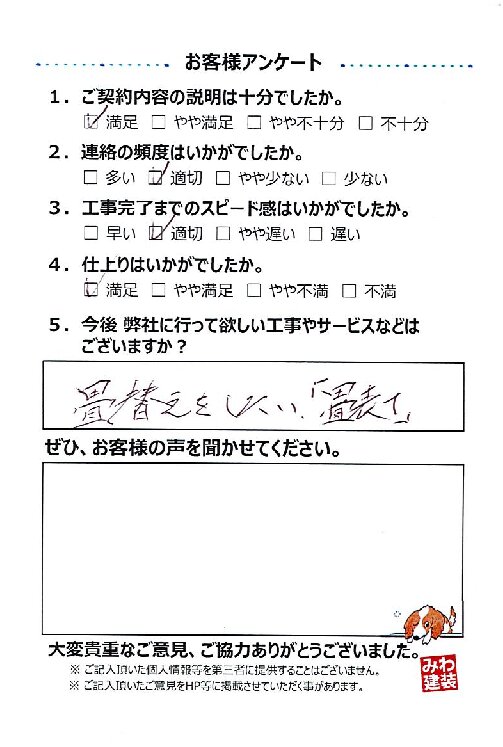 お客様アンケート
1．ご契約内容の説明は十分でしたか。
☑ 満足 □ やや満足 □ やや不十分 □ 不十分
2．連絡の頻度はいかがでしたか。
□ 多い ☑ 適切 □ やや少ない □ 少ない
3．工事完了までのスピード感はいかがでしたか。
□ 早い ☑ 適切 □ やや遅い □ 遅い
4．仕上りはいかがでしたか。
☑ 満足 □ やや満足 □ やや不満 □ 不満
5．今後 弊社に行って欲しい工事やサービスなどは
ございますか？
畳替えをしたい、「畳表て」
ぜひ、お客様の声を聞かせてください。
大変貴重なご意見、ご協力ありがとうございました。
※ ご記入頂いた個人情報等を第三者に提供することはございません。
※ ご記入頂いたご意見をHP等に掲載させていただく事があります。
みわ
建装